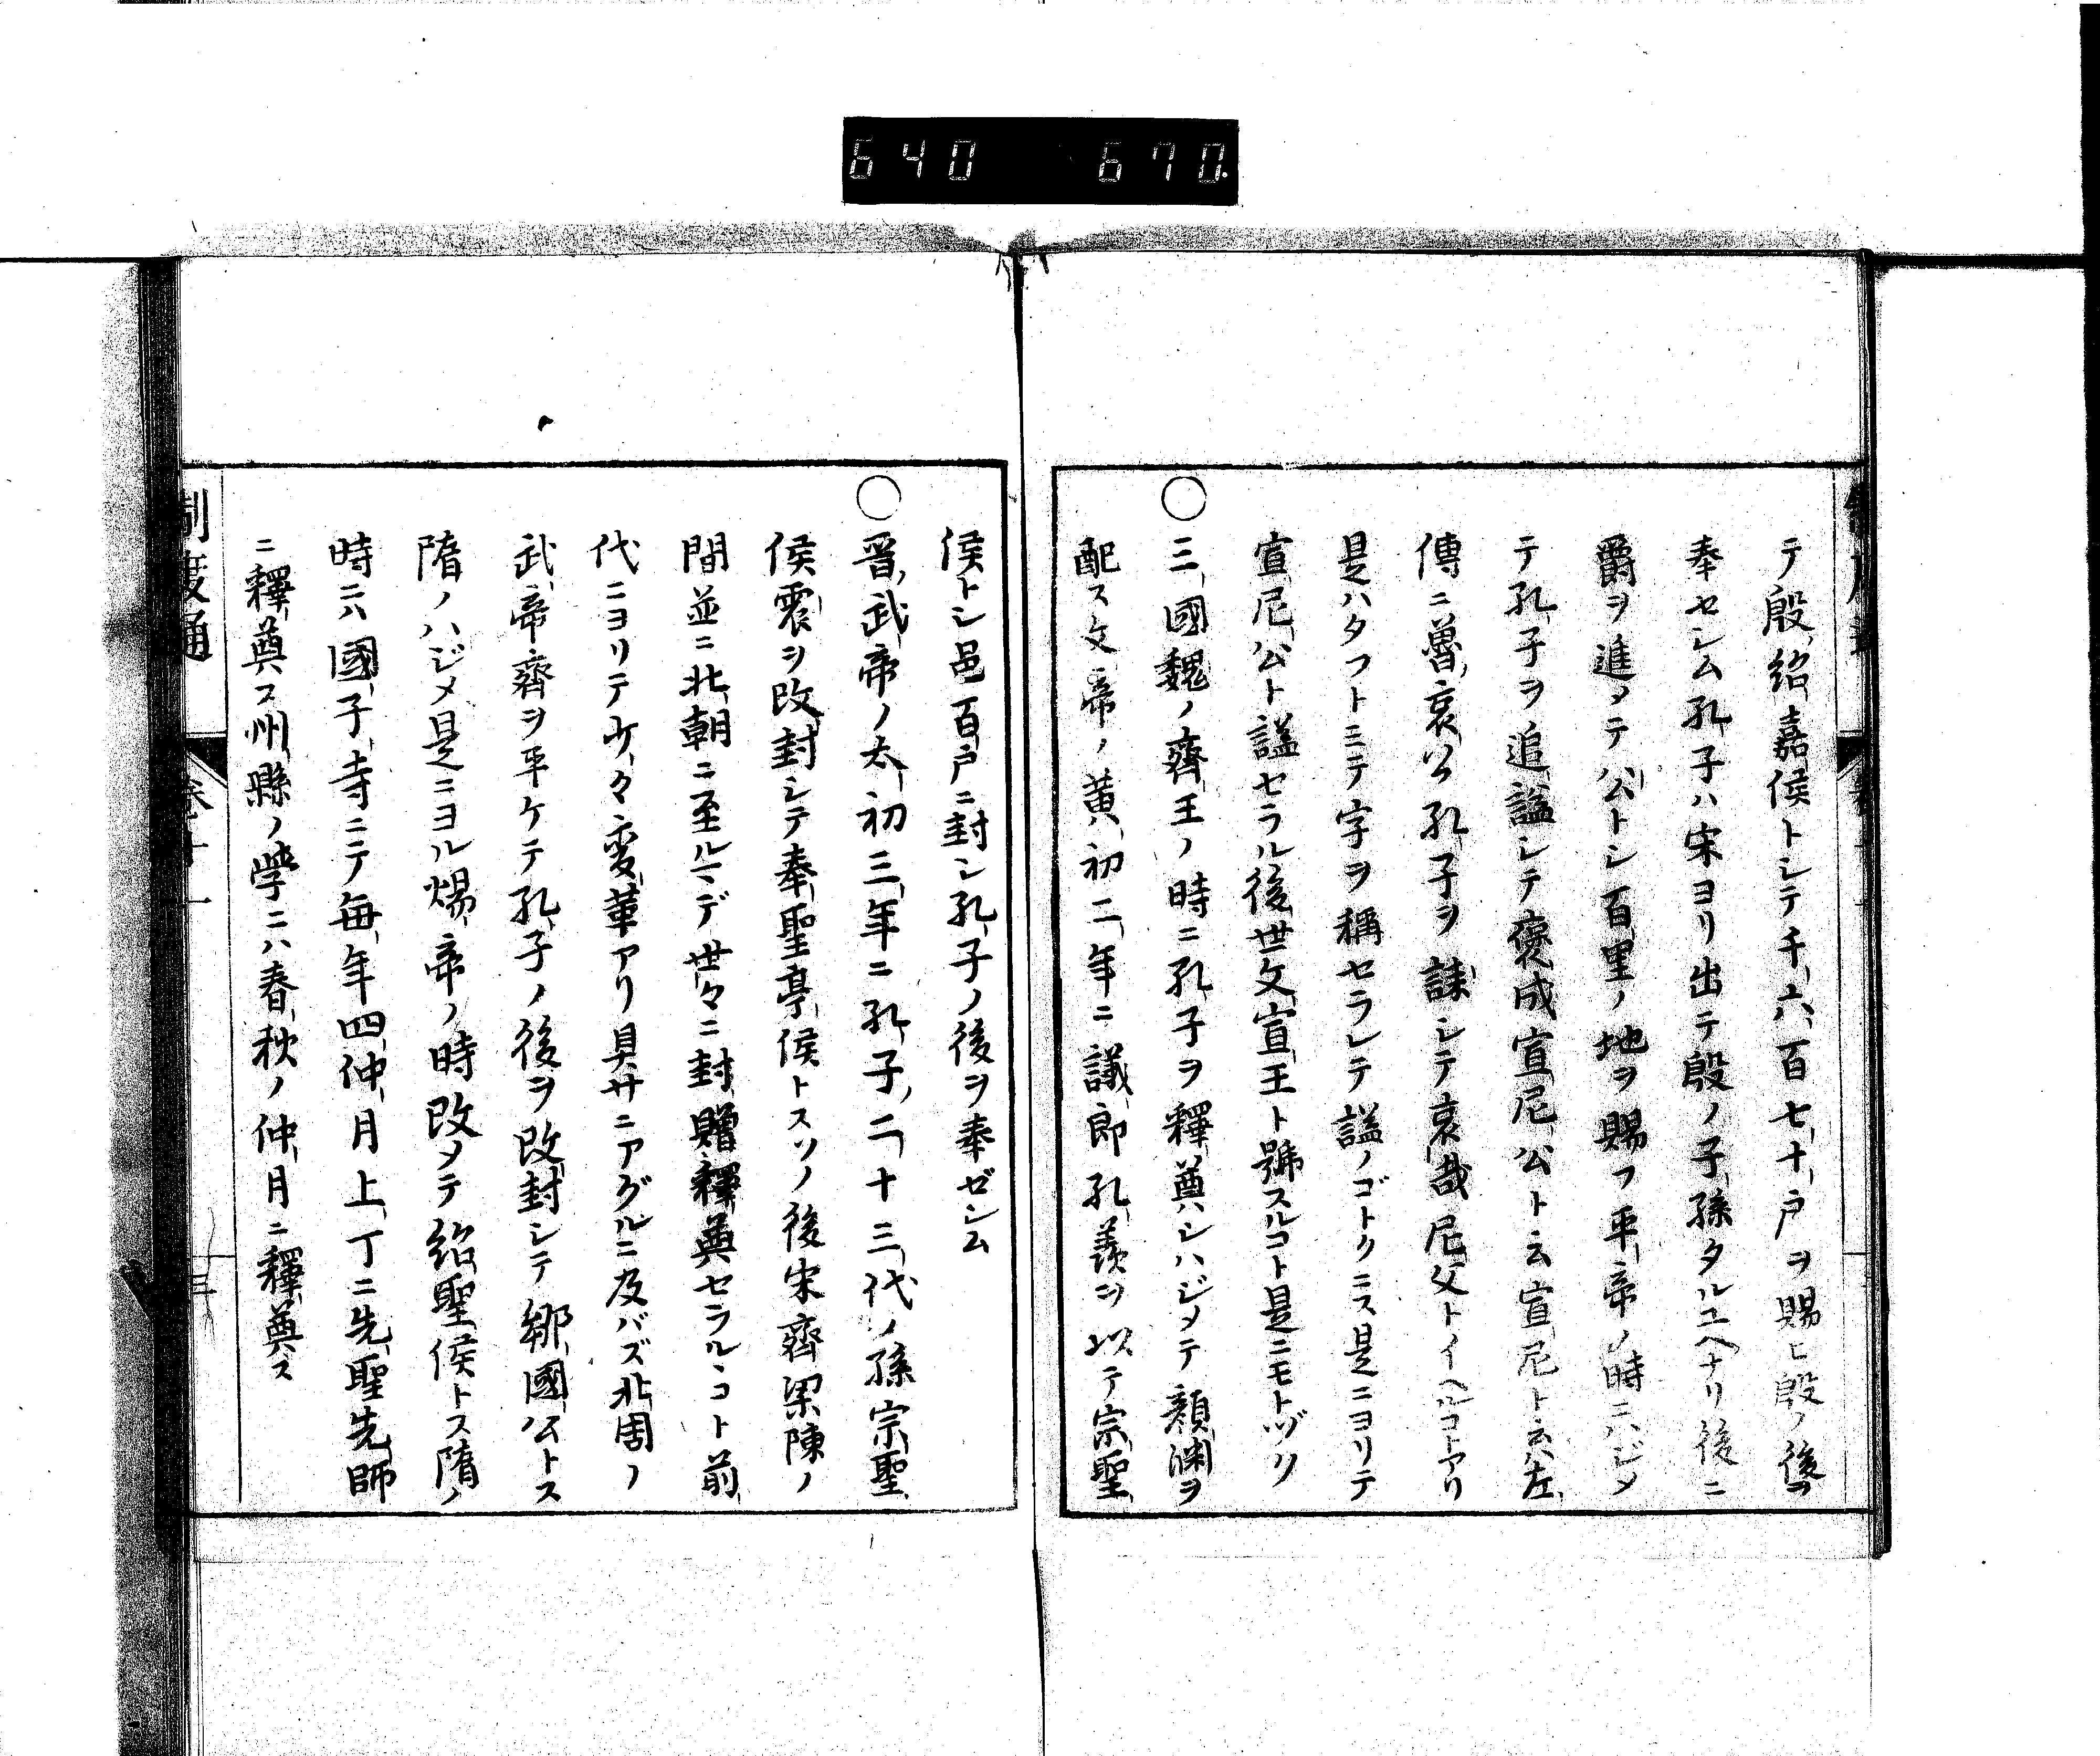 640 670.
テ殷紹嘉侯トシテ千六百七十戸ヲ賜ヒ殷ノ後ヲ
奉セシム孔子ハ宋ヨリ出テ殷ノ子孫タルユヘナリ後ニ
爵ヲ進メテ公トシ百里ノ地ヲ賜フ平帝ノ時ニハジメ
テ孔子ヲ追謚シテ褒成宣尼公ト云宣尼ト云ハ左
傳ニ魯哀公孔子ヲ誄シテ哀哉尼父トイヘルコトアリ
是ハタフトミテ字ヲ稱セラレテ謚ノゴトクニス是ニヨリテ
宣尼公ト謚セラル後世文宣王ト號スルコト是ニモトヅク
○三國魏ノ齊王ノ時ニ孔子ヲ釋奠シハジメテ顔淵ヲ
配ス文帝ノ黄初二年ニ議郎孔羨ヲ以テ宗聖
侯トシ邑百戸ニ封シ孔子ノ後ヲ奉ゼシム
○晋武帝ノ太初三年ニ孔子二十三代ノ孫宗聖
侯震ヲ改封シテ奉聖亭侯トスソノ後宋齊梁陳ノ
間並ニ北朝ニ至ルマデ世々ニ封贈釋奠セラルヽコト前
代ニヨリテ少々変革アリ具サニアグルニ及バズ北周ノ
武帝齊ヲ平ケテ孔子ノ後ヲ改封シテ鄒國公トス
隋ノハジメ是ニヨル煬帝ノ時改メテ紹聖侯トス隋ノ
時ニハ國子寺ニテ毎年四仲月上丁ニ先聖先師
ニ釋奠ス州縣ノ学ニハ春秋ノ仲月ニ釋奠ス
制度通 卷十一 三